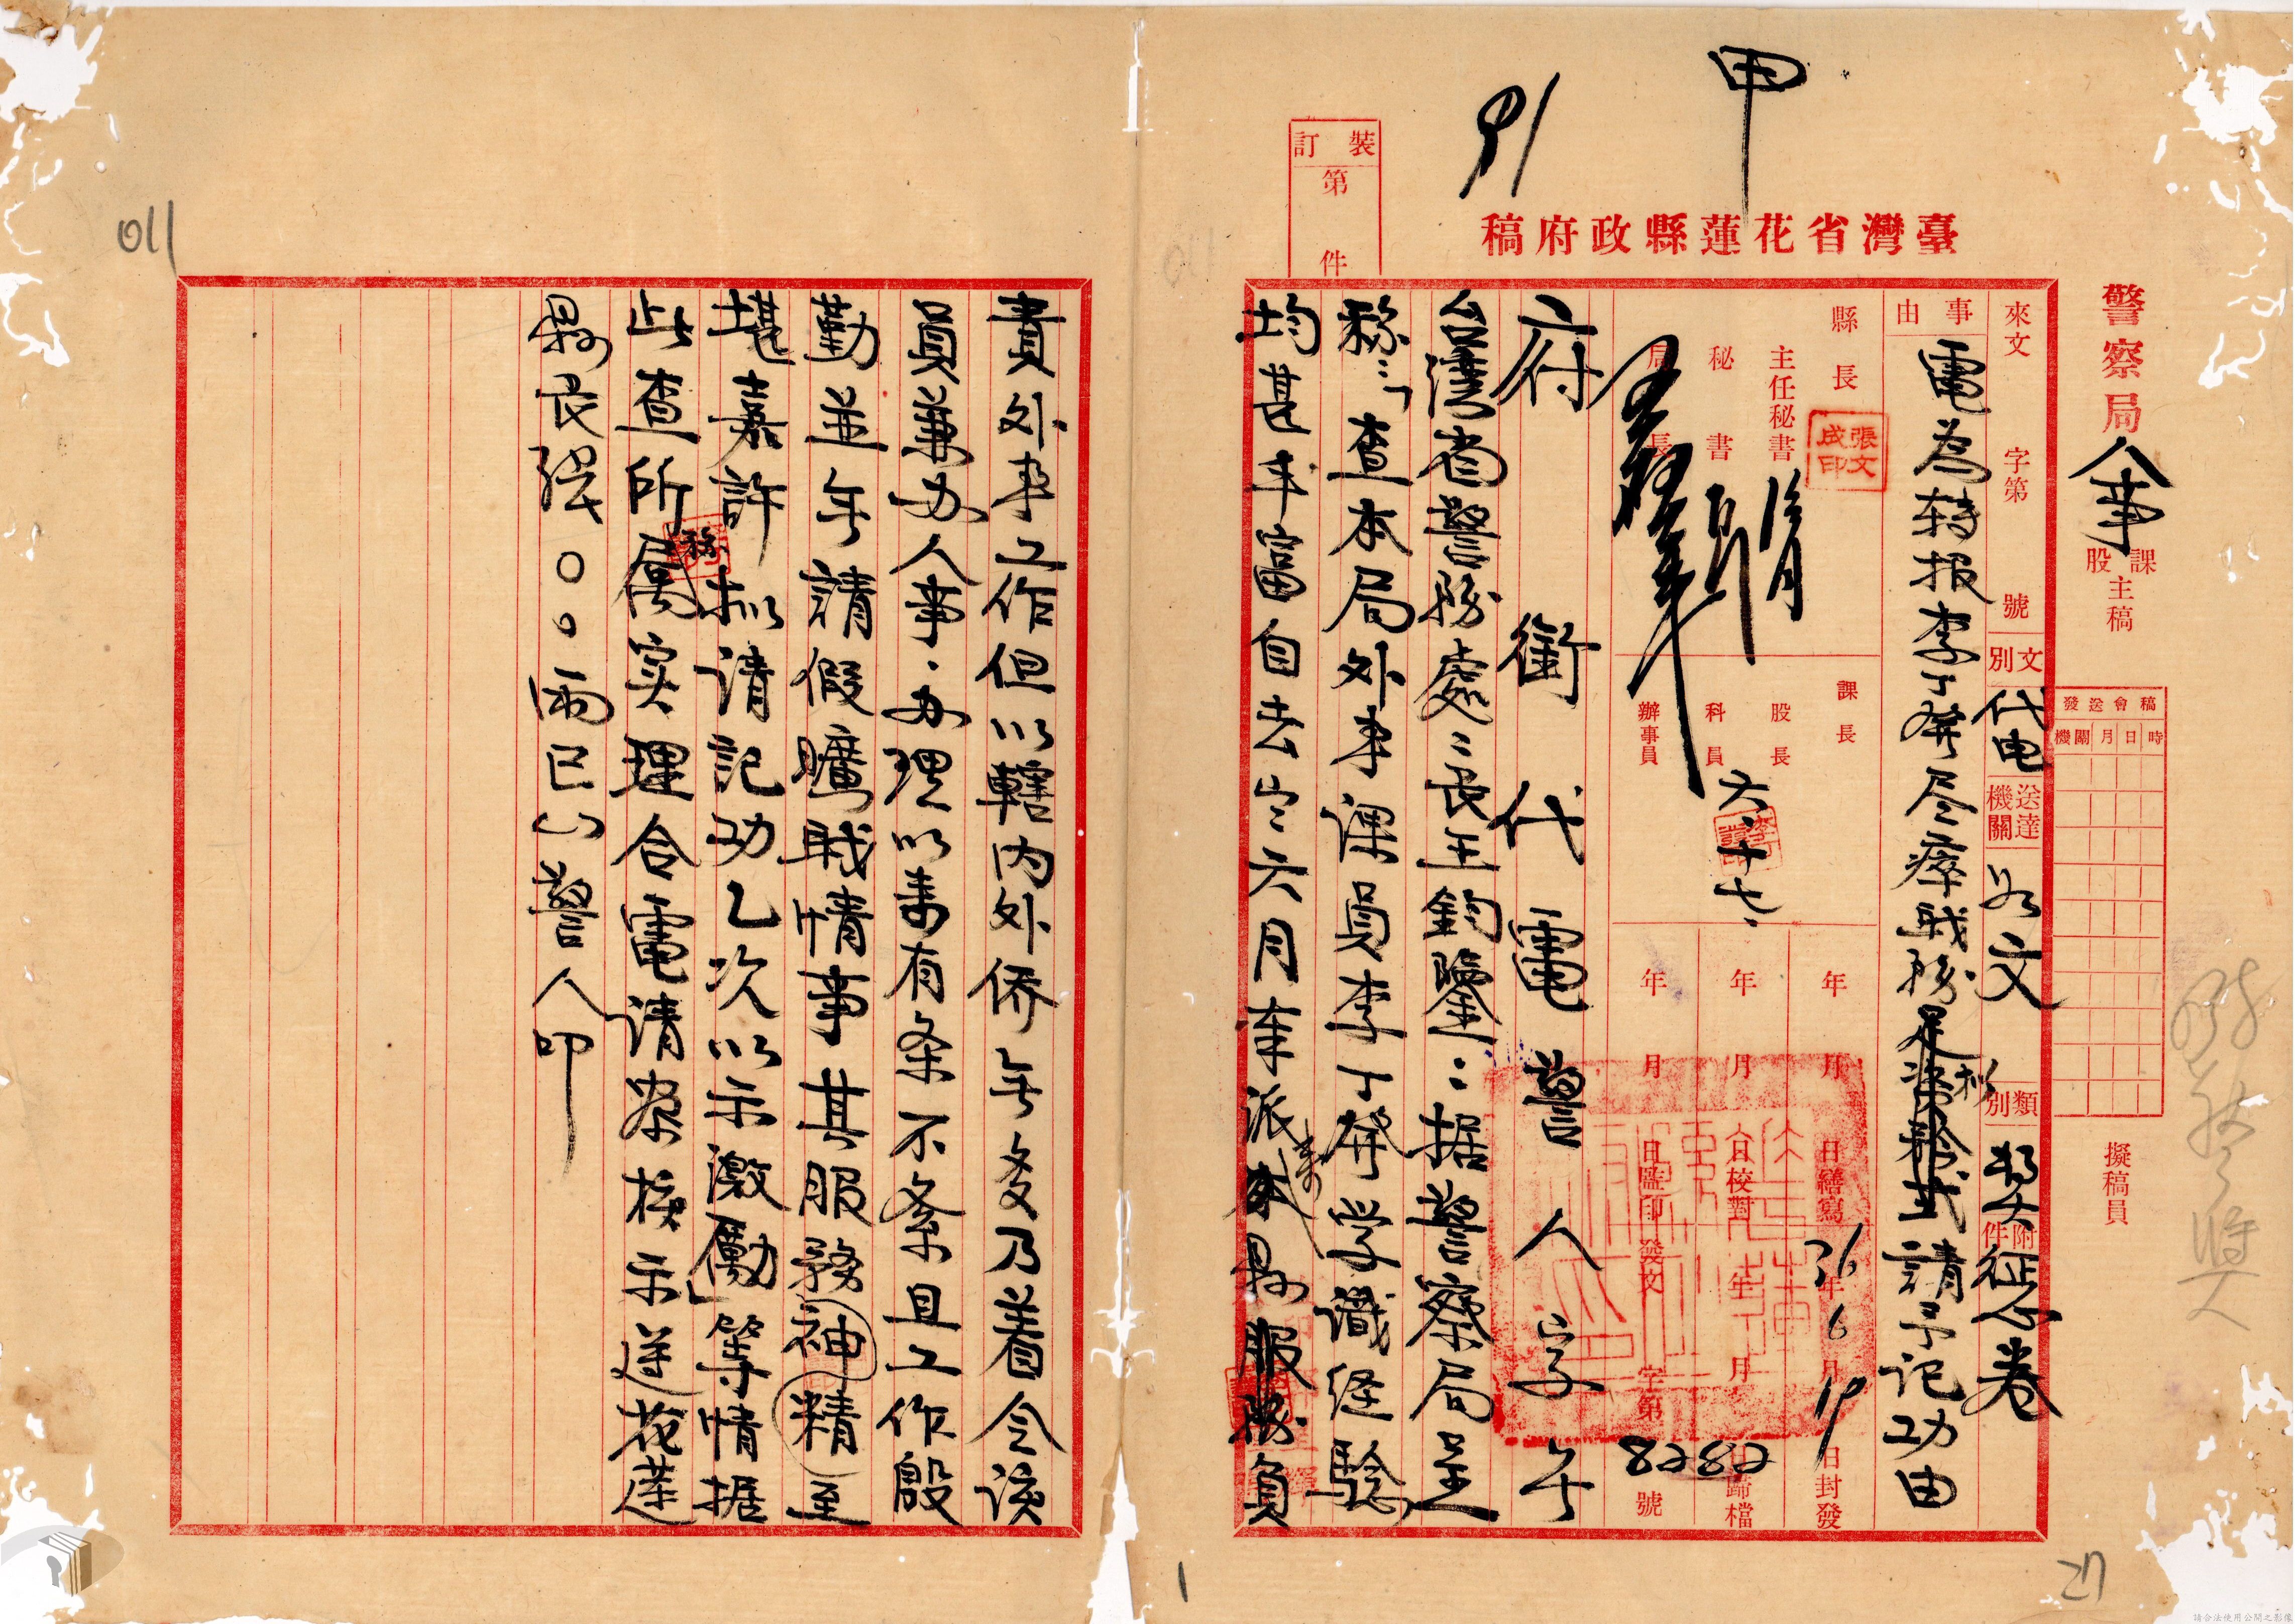 甲
91
臺灣省花蓮縣政府稿
裝訂
第 件
警察局
人事
課股主稿
擬稿員
稿會送發
時日月機關
來文 字第 號
文別 代電
送達機關
類別
附件
卷
事由
電為轉報李丁癸尽瘁職務 擬請予記功由
縣長
張文成印
主任秘書
秘書
局長
課長
股長
科員
辦事員
六、十七、
年 月 日繕寫
年 月 日校對
年 月 日監印
36年6月19日封發
年 月 日歸檔
發文 字第 號
8282
府銜代電 警人字 号
台湾省警务處處長王鈞鑒：据警察局呈
称：「查本局外事课員李丁癸学識经驗
均甚丰富自去年六月奉派來县服务負
責外事工作但以轄内外侨無多乃着令该
員兼办人事办理以來有条不紊且工作殷
勤並無請假曠职情事其服務神精至
堪嘉許拟请記功乙次以示激勵」等情据
此查所称属实理合電请察核示遵花蓮
县長張○○兩巳 警人印
011
1
27
請合法使用公開之影像